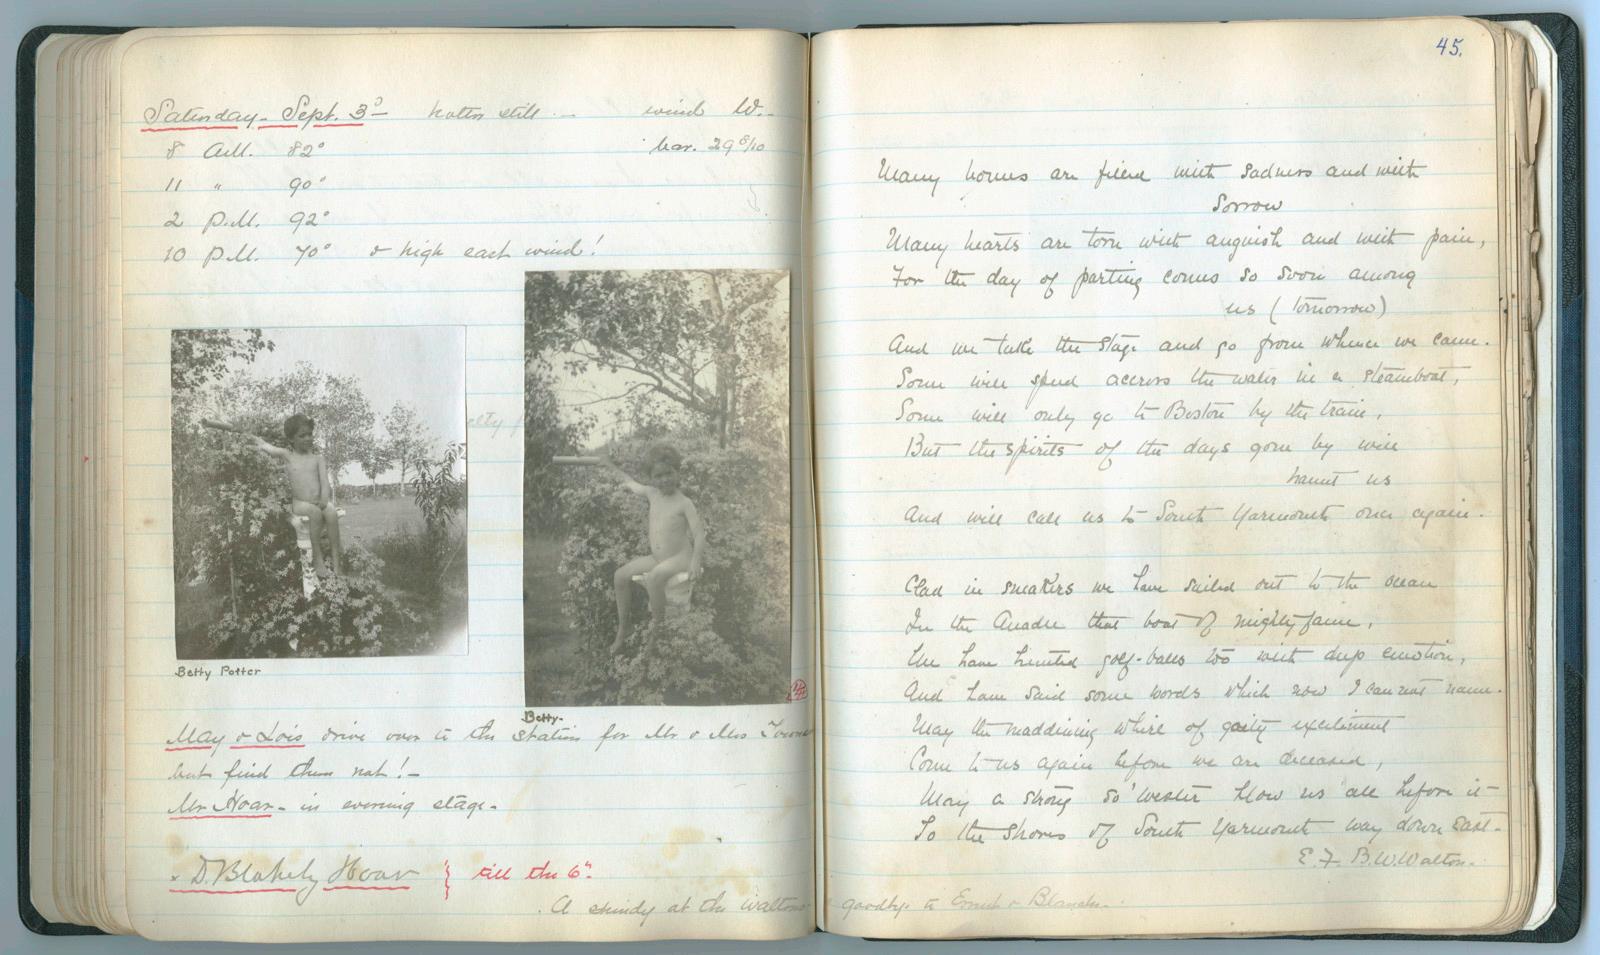 Saturday - Sept. 3d - hotter still - wind W. -
8 A.M. 82° bar. 29 8/10
11 " 90°
2 P.M. 92°
10 P.M. 70° & high east wind!
Betty Potter
Betty -
May & Lois drive over to the station for Mr & Mrs
but find them not! -
Mr Hoar - in evening stage -
x D. Blakely Hoar } till the 6th
A shindy at the Waltons - goodbye to Ernest & Blanche -
45.
Many homes are filled with sadness and with
sorrow
Many hearts are torn with anguish and with pain,
For the day of parting comes so soon among
us (tomorrow)
And we take the stage and go from whence we came.
Some will speed accross the water in a steamboat,
Some will only go to Boston by the train,
But the spirits of the days gone by will
haunt us
And will call us to South Yarmouth once again.
Clad in sneakers we have sailed out to the ocean
In the that boat of mighty fame,
We have hunted golf-balls too with deep emotion,
And have said some words which now I can not name.
May the maddening whirl of gaity excitement
Come to us again before we are deceased,
May a strong so'wester blow us all before it -
To the shores of South Yarmouth way down East -
E. F. B. W. Walton -